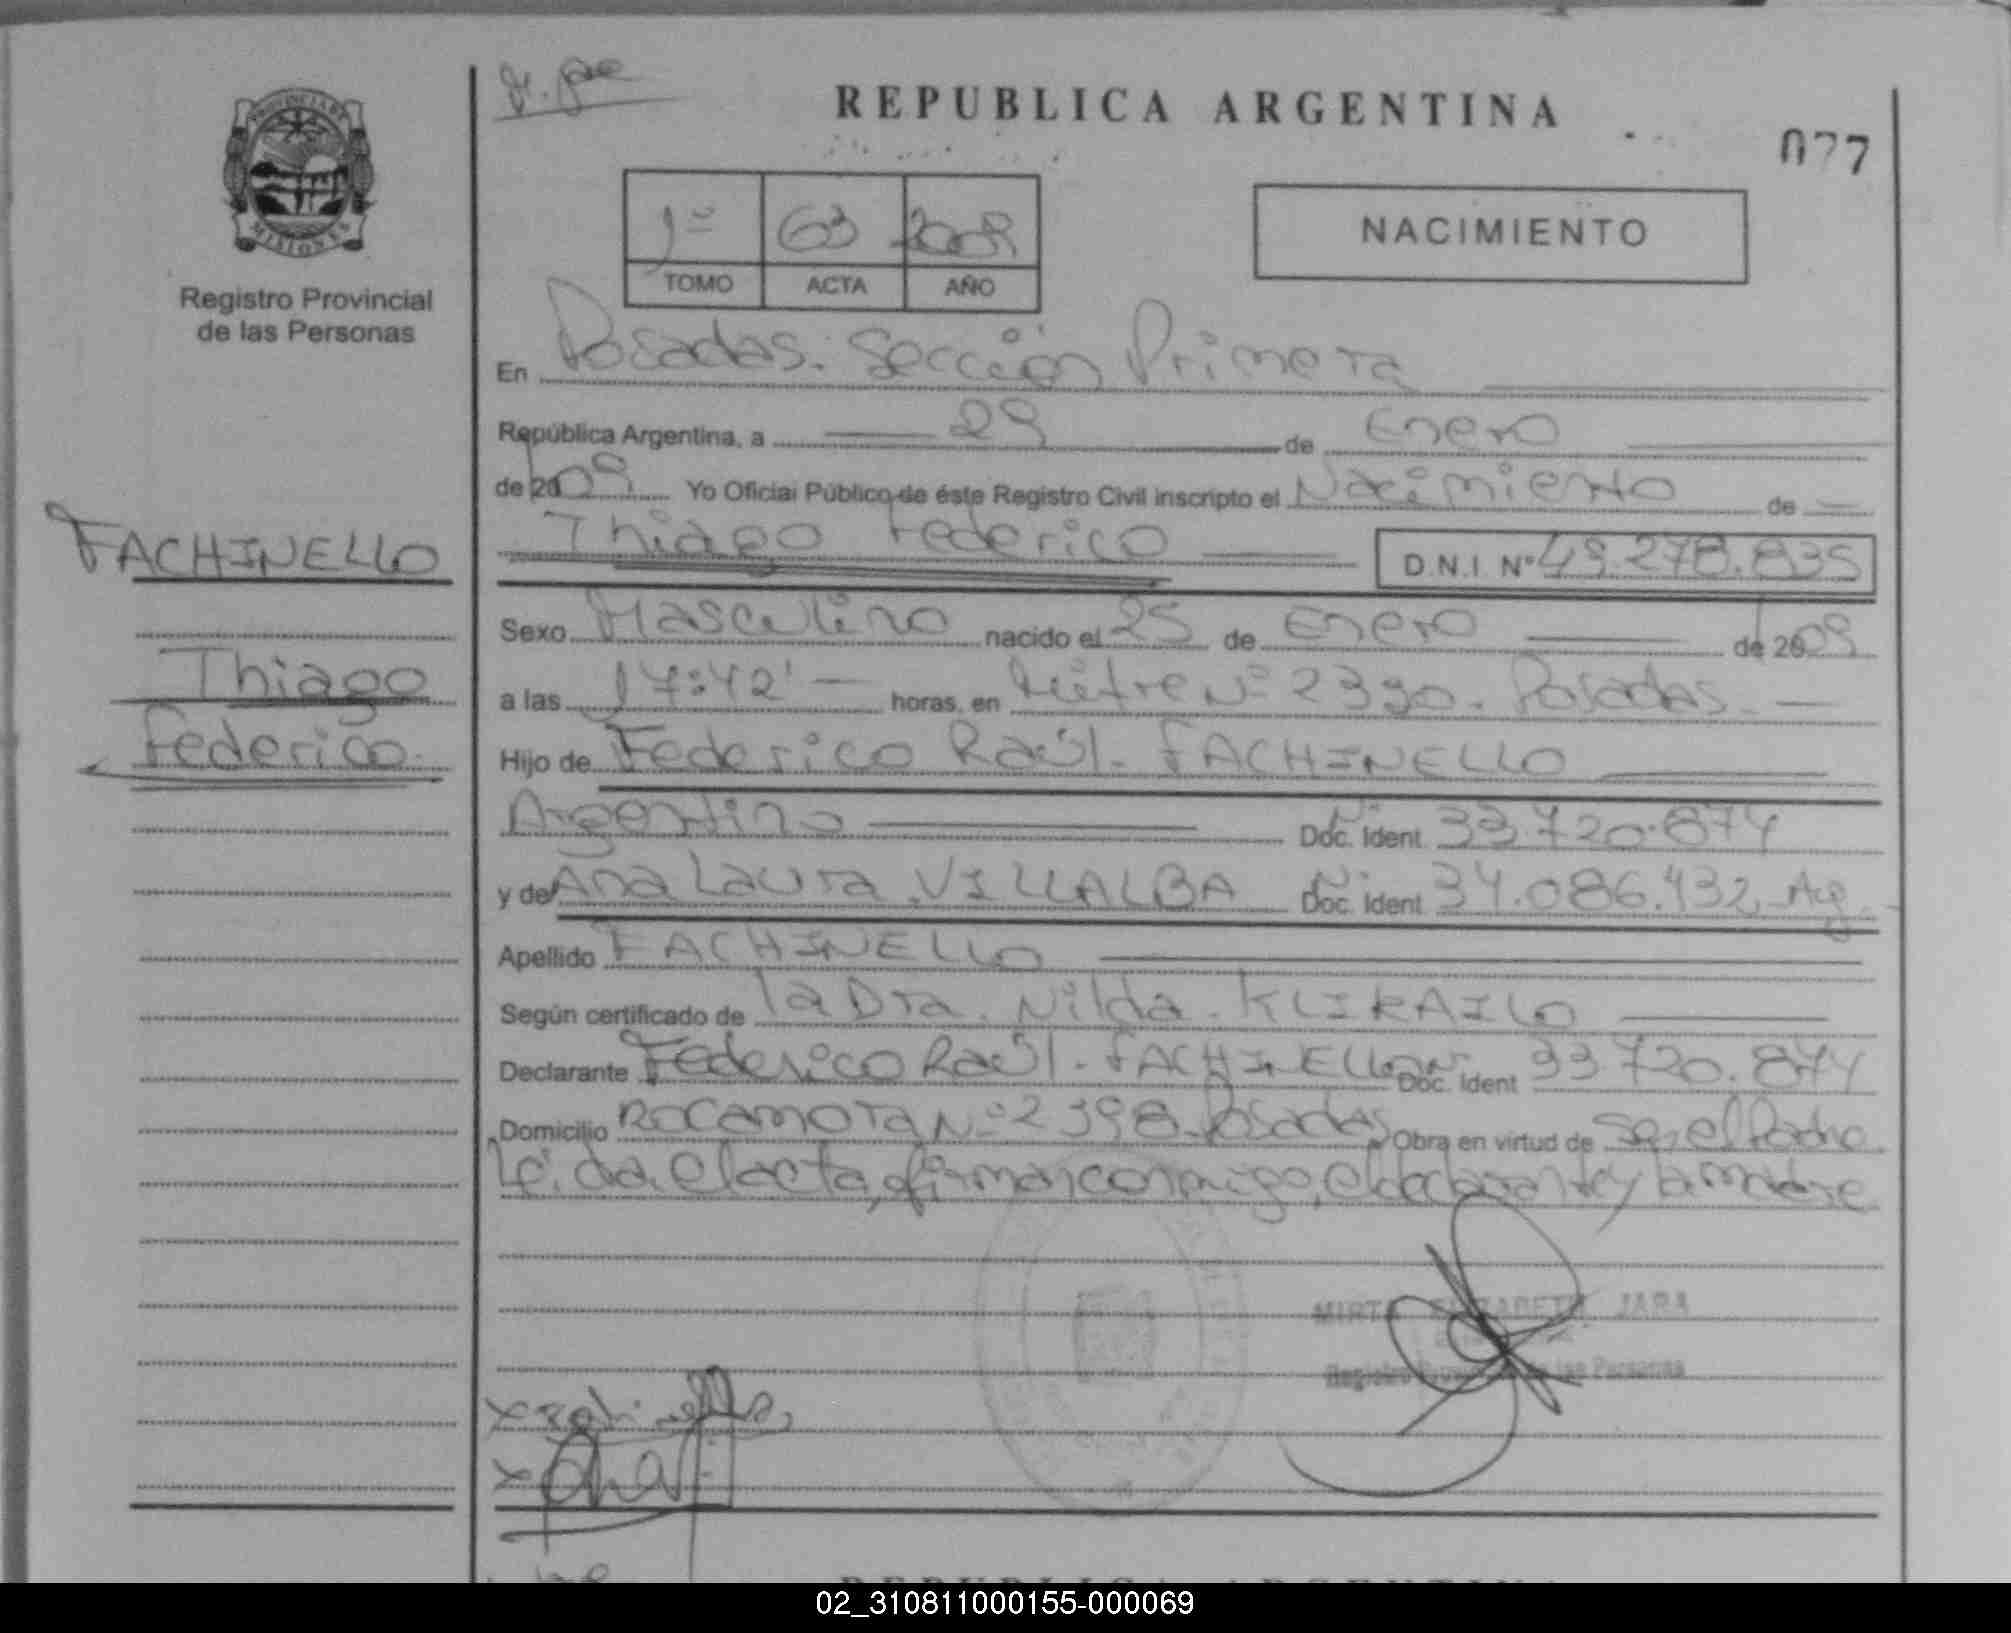 REPUBLICA ARGENTINA
077
PROVINCIA DE
MISIONES
Registro Provincial
de las Personas
1º 63 2009
TOMO ACTA AÑO
NACIMIENTO
En Posadas. Sección Primera
República Argentina, a 29 de Enero
de 2009 Yo Oficial Público de éste Registro Civil inscripto el Nacimiento de
Thiago Federico D.N.I. Nº 49.278.835
FACHINELLO
Thiago
Federico.
Sexo Masculino nacido el 25 de Enero de 2009
a las 17:42' horas, en Mitre Nº 2390. Posadas.
Hijo de Federico Raúl. FACHINELLO
Argentino Doc. Ident. Nº 33.720.874
y de Ana Laura VILLALBA Doc. Ident Nº 34.086.432 Arg.
Apellido FACHINELLO
Según certificado de la Dra. Nilda. KLIKAILO
Declarante Federico Raúl. FACHINELLO Nº Doc. Ident 33.720.874
Domicilio ROCAMORA Nº 2398. Posadas Obra en virtud de Ser el Padre
Leída el acta, firman conmigo, el declarante y la madre
MIRTA ELIZABETH JARA
Registro Provincial de las Personas
REPUBLICA ARGENTINA
02_310811000155-000069